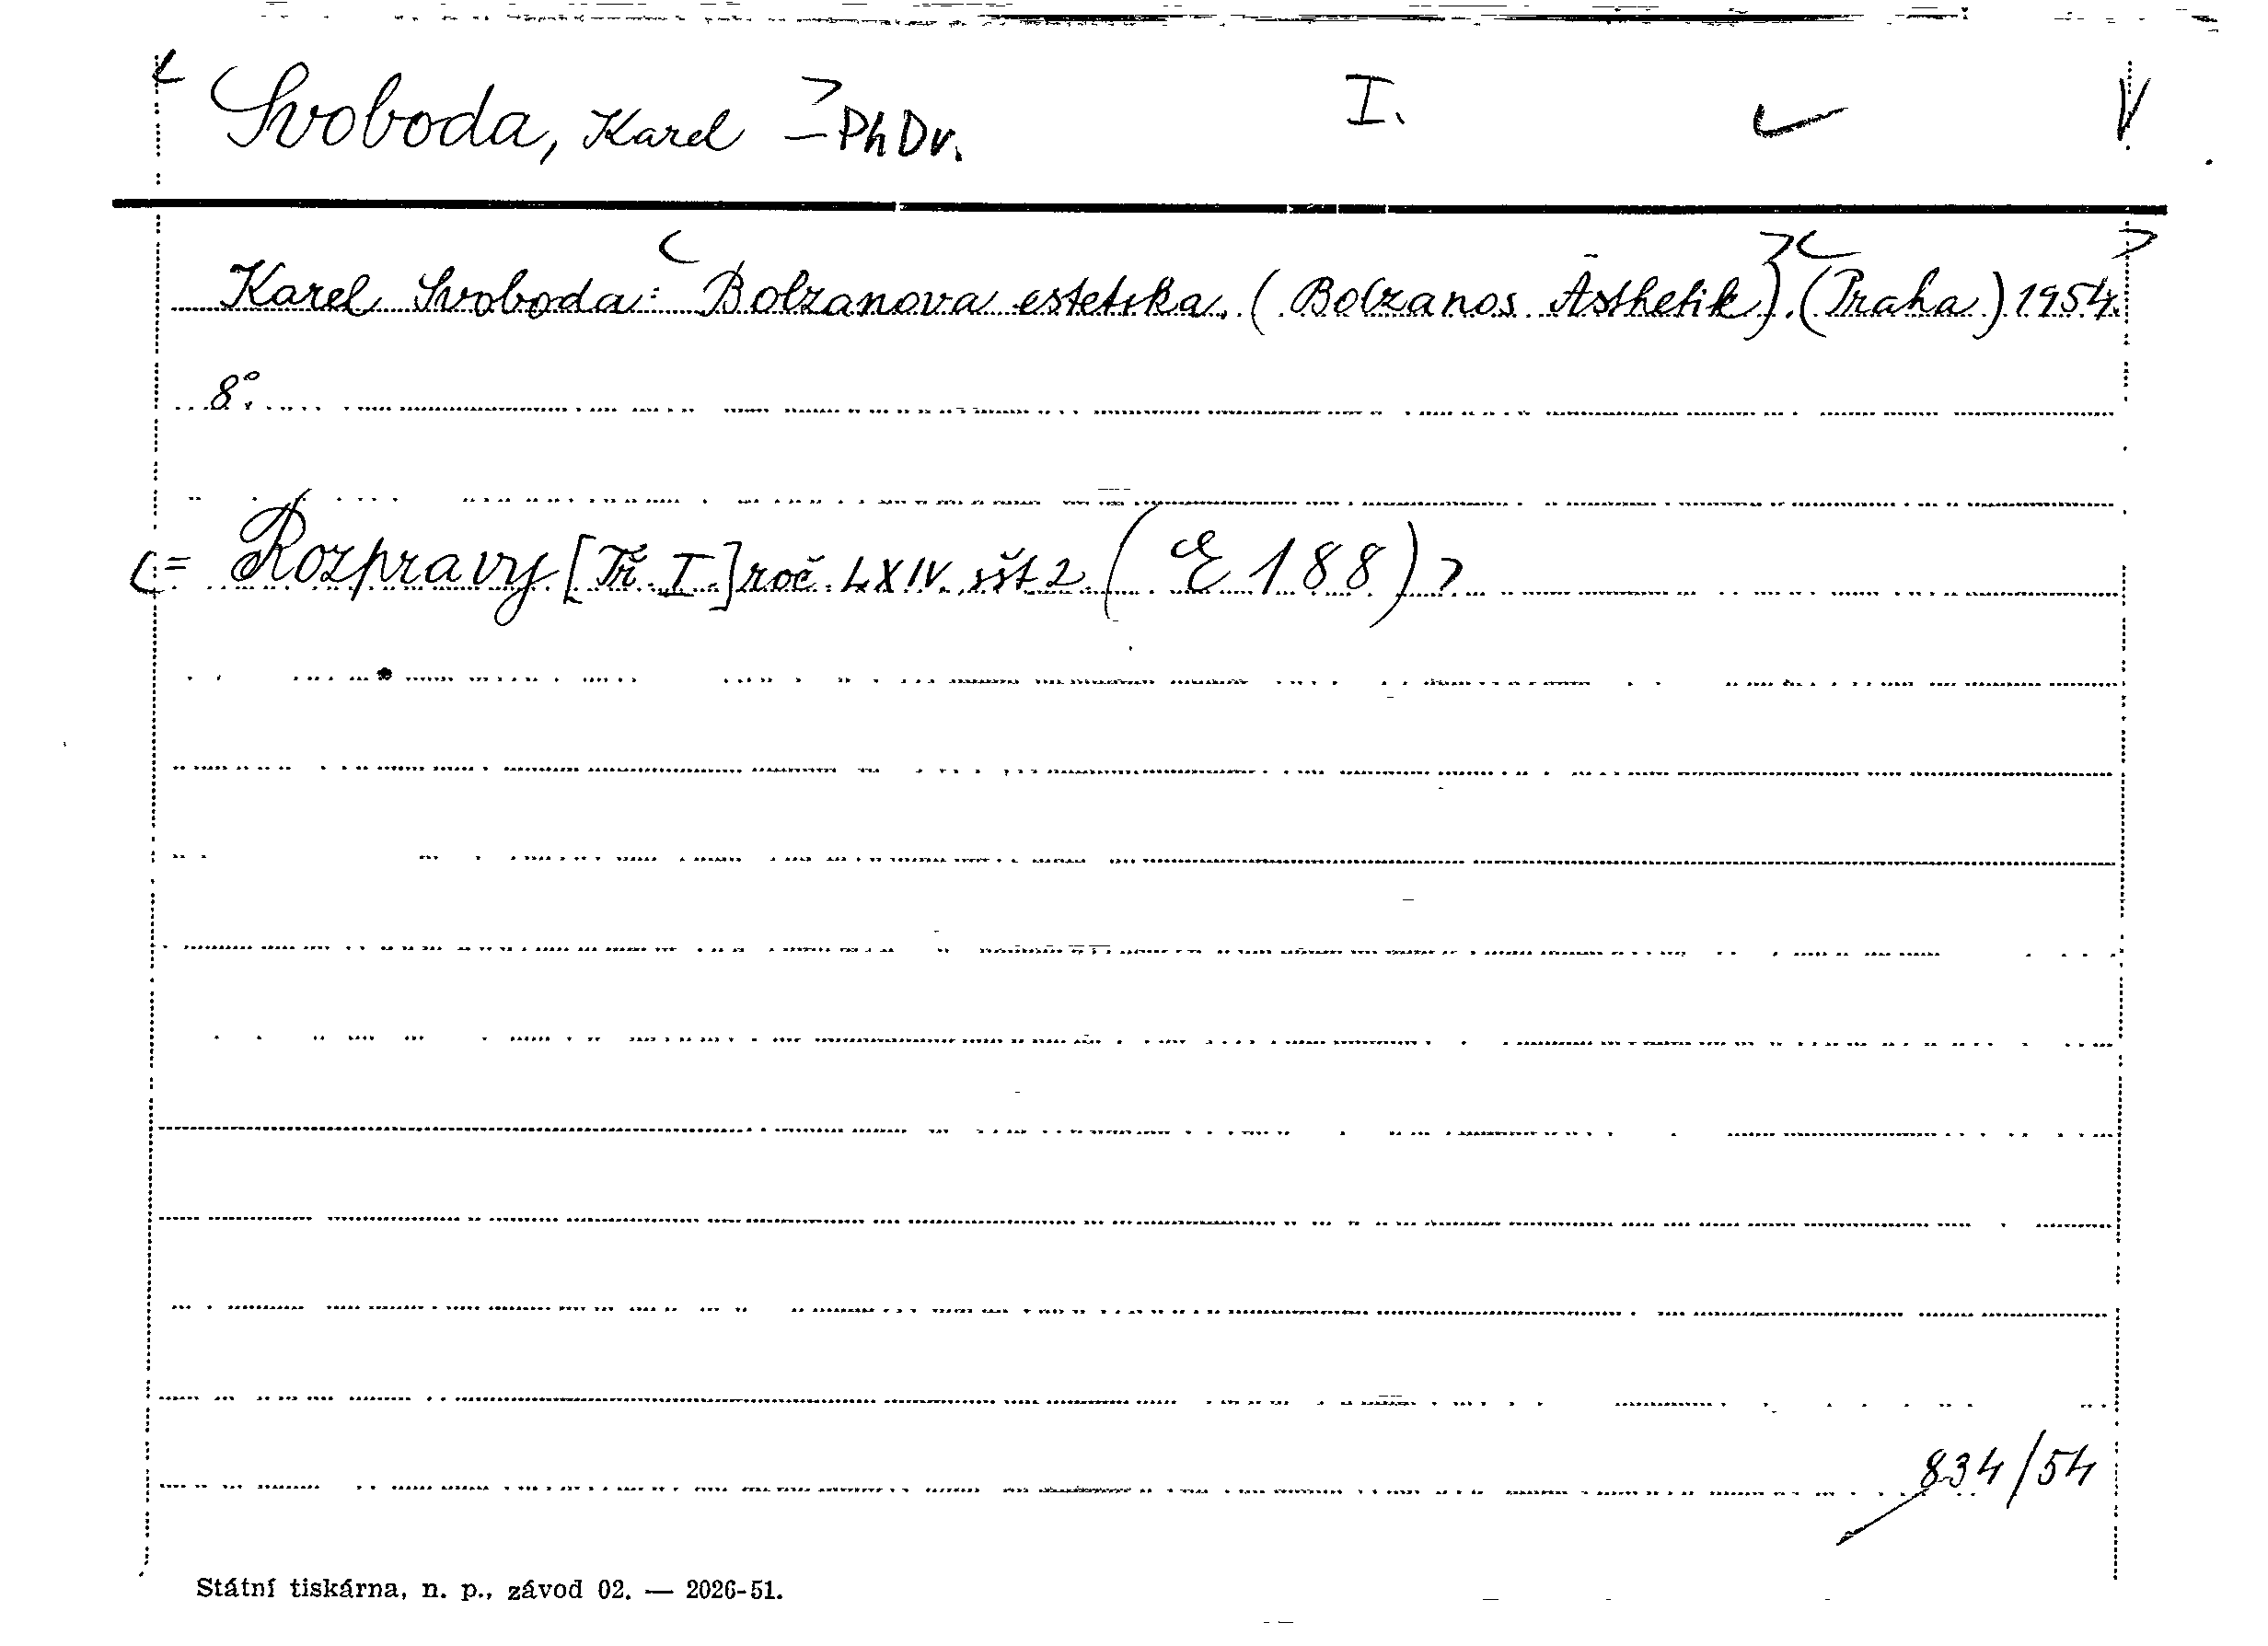 Svoboda, Karel – PhDr. I.
Karel Svoboda: Bolzanova estetika. (Bolzanos Ästhetik). (Praha) 1954.
8°.
= Rozpravy [Tř. I.] roč. LXIV. sšt 2. (E 188)
834/54
Státní tiskárna, n. p., závod 02. — 2026-51.